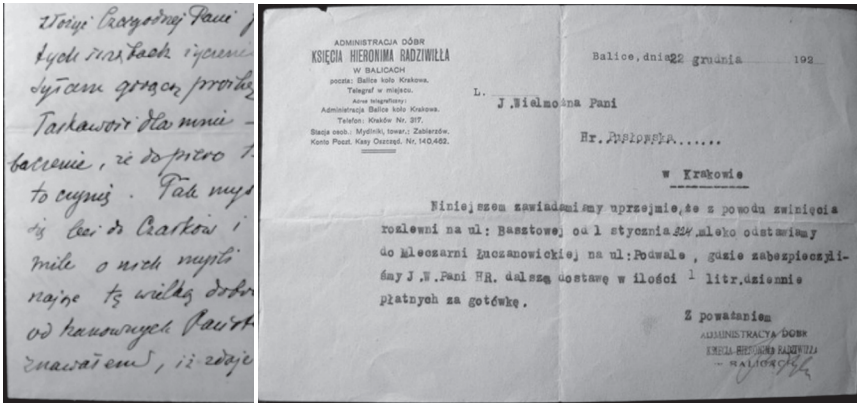 złożyć Czcigodnej Pani
tych
gorącą prośbę
dla mnie —
baczenie, że dopiero
to czynię. Tak
się do i
mile o nich myśli
tę wielką
od
ADMINISTRACJA DÓBR
KSIĘCIA HIERONIMA RADZIWIŁŁA
W BALICACH
poczta: Balice koło Krakowa.
Telegraf w miejscu.
Adres telegraficzny:
Administracja Balice koło Krakowa.
Telefon: Kraków Nr. 317.
Stacja osob.: Mydlniki, towar.: Zabierzów.
Konto Poczt. Kasy Oszczęd. Nr. 140.462.
Balice, dnia 22 grudnia 192
L.
J.Wielmożna Pani
Hr. Pusłowska......
w Krakowie
Niniejszem zawiadamiamy uprzejmie,że z powodu zwinięcia
rozlewni na ul: Basztowej od 1 stycznia 924.mleko odstawiamy
do Mleczarni Łuczanowickiej na ul:Podwale , gdzie zabezpieczyli-
śmy J.W.Pani HR. dalszą dostawę w ilości 1 litr.dziennie
płatnych za gotówkę.
Z poważaniem
ADMINISTRACYA DÓBR
KSIĘCIA HIERONIMA RADZIWIŁŁA